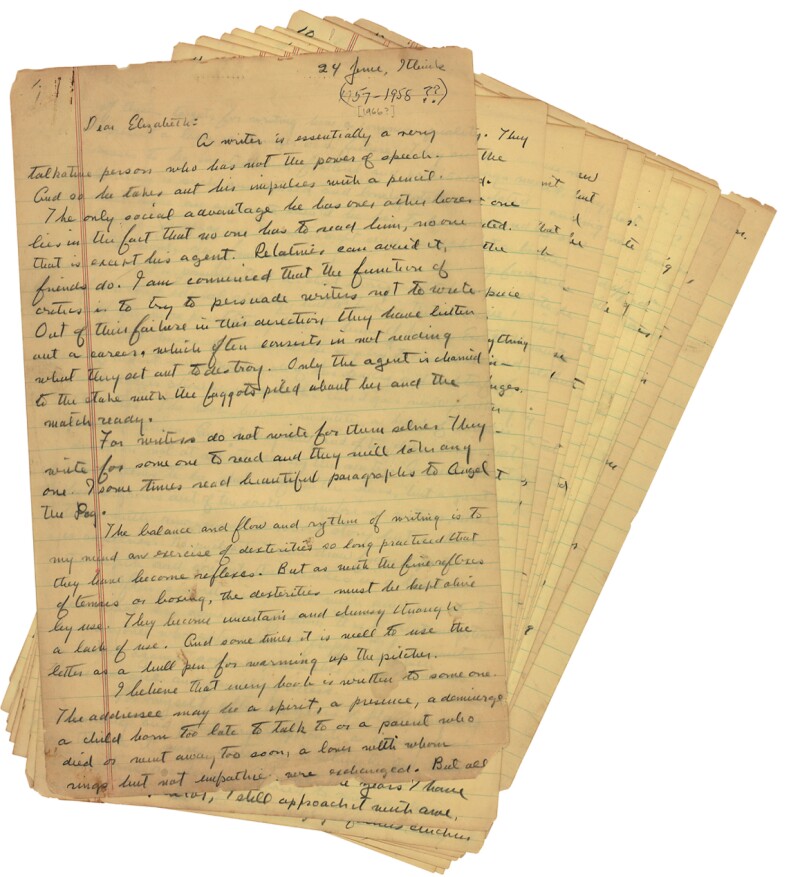 24 June, I think
(1957-1958 ??)
[1966?]
Dear Elizabeth:
A writer is essentially a very
talkative person who has not the power of speech.
And so he takes out his impulses with a pencil.
The only social advantage he has over other bores
lies in the fact that no one has to read him, no one
that is except his agent. Relatives can avoid it,
friends do. I am convinced that the function of
critics is to try to persuade writers not to write
Out of their failure in this direction they have
out a career, which often consists in not reading
what they set out to destroy. Only the agent is chained
to the stake with the faggots piled about her and the
match ready.
For writers do not write for them selves They
write for some one to read and they will take any
one. I some times read beautiful paragraphs to Angel
the Dog.
The balance and flow and rythm of writing is to
my mind an exercise of dexterities so long practiced that
they have become reflexes. But as with the fine reflexes
of tennis or boxing, the dexterities must be kept alive
by use. They become uncertain and clumsy through
a lack of use. And some times it is well to use the
letter as a bull pen for warming up the pitcher.
I believe that every book is written to some one.
The addressee may be a spirit, a presence, a demiurge
a child born too late to talk to or a parent who
died or went away too soon, a lover with whom
rings but not empathic were exchanged. But all
years I have
I still approach it with awe,
They
the
one
the
piece